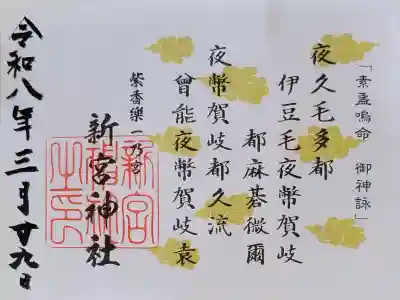 「素盞嗚命 御神詠」
夜久毛多都
伊豆毛夜幣賀岐
都麻碁微爾
夜幣賀岐都久流
曾能夜幣賀岐袁
紫香樂一乃宮
新宮神社
令和八年三月廿九日